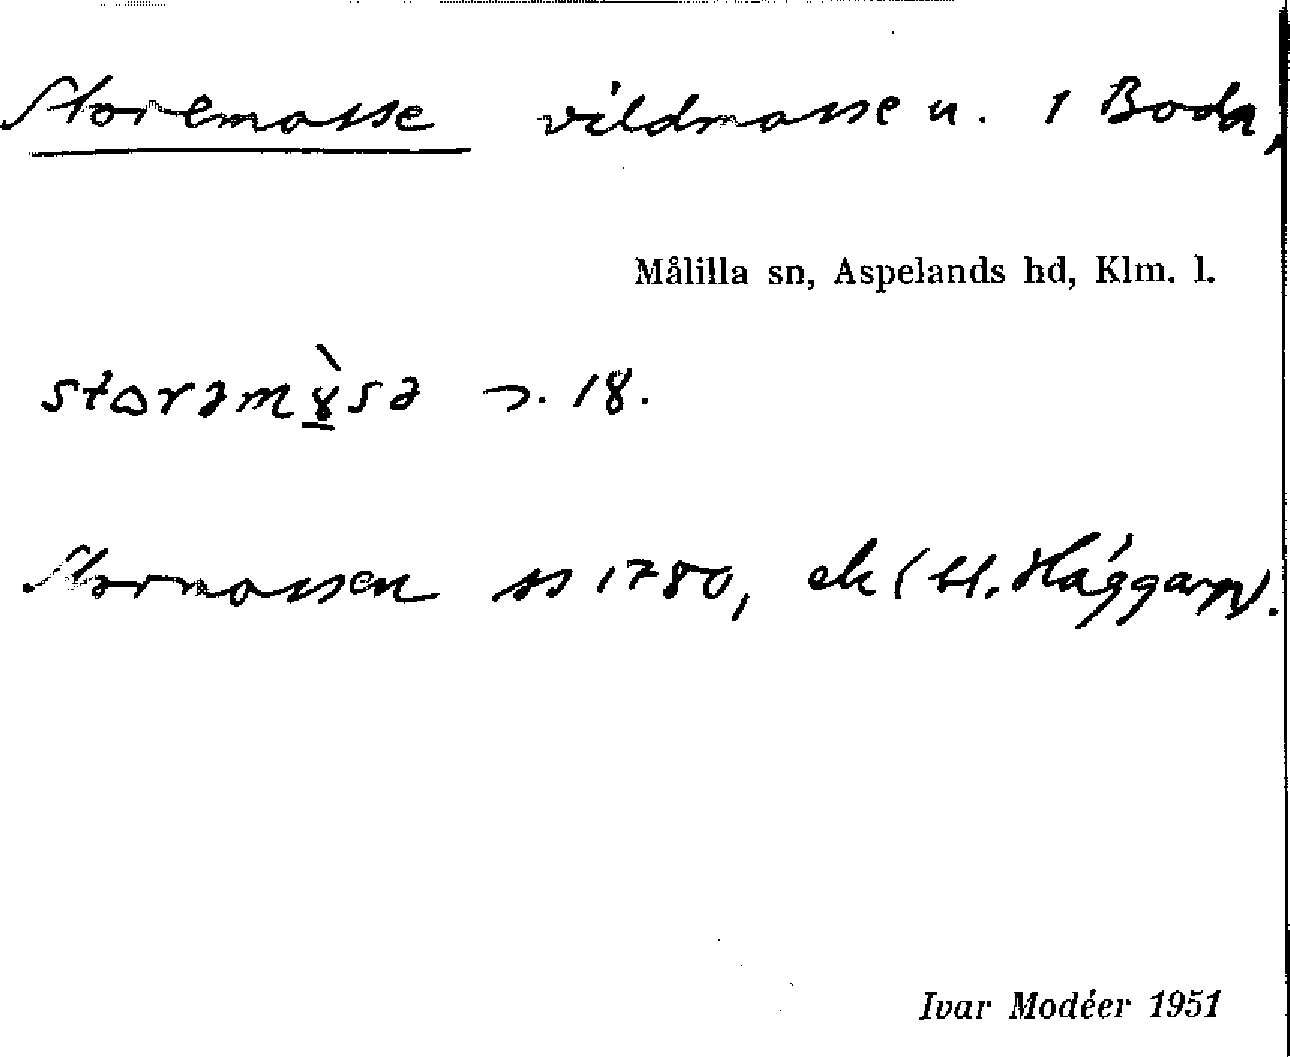 Storemosse vildmosse u. 1 Boda,
Målilla sn, Aspelands hd, Klm. l.
storəm
Stormossen ss 1780, ek (bl. Häggarp).
Ivar Modéer 1951